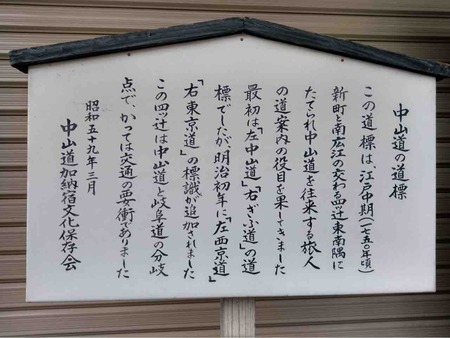 中山道の道標
この道標は、江戸中期(一七五〇年頃)
新町と南広江の交わる四ッ辻東南隅に
たてられ中山道を往来する旅人
の道案内の役目を果してきました
最初は「左中山道」「右ぎふ道」の道
標でしたが、明治初年に「左西京道」
「右東京道」の標識が追加されました
この四ッ辻は中山道と岐阜道の分岐
点で、かっては交通の要衝でありました
昭和五十九年三月
中山道加納宿文化保存会